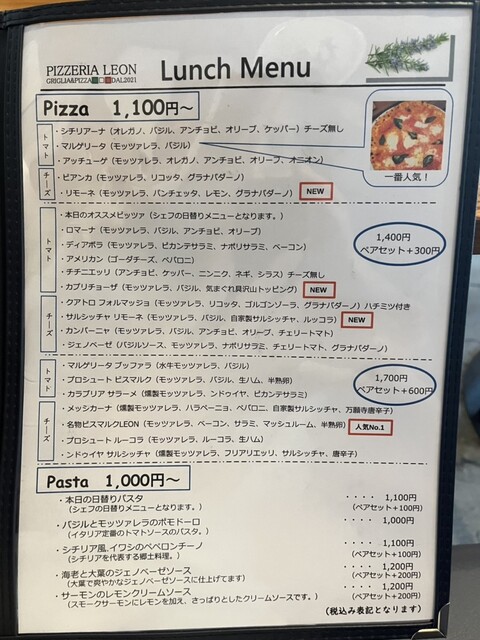 PIZZERIA LEON
GRIGLIA&PIZZA DAL2021
Lunch Menu
Pizza 1,100円～
トマト
・シチリアーナ（オレガノ、バジル、アンチョビ、オリーブ、ケッパー）チーズ無し
・マルゲリータ（モッツァレラ、バジル）
・アッチューゲ（モッツァレラ、オレガノ、アンチョビ、オリーブ、オニオン）
一番人気！
チーズ
・ビアンカ（モッツァレラ、リコッタ、グラナパダーノ）
・リモーネ（モッツァレラ、パンチェッタ、レモン、グラナパダーノ） NEW
トマト
・本日のオススメピッツァ（シェフの日替りメニューとなります。）
・ロマーナ（モッツァレラ、バジル、アンチョビ、オリーブ）
・ディアボラ（モッツァレラ、ピカンテサラミ、ナポリサラミ、ベーコン）
・アメリカン（ゴーダチーズ、ペパロニ）
・チチニエッリ（アンチョビ、ケッパー、ニンニク、ネギ、シラス）チーズ無し
・カプリチョーザ（モッツァレラ、バジル、気まぐれ具沢山トッピング） NEW
1,400円
ペアセット＋300円
チーズ
・クアトロ フォルマッジョ（モッツァレラ、リコッタ、ゴルゴンゾーラ、グラナパダーノ）ハチミツ付き
・サルシッチャ リモーネ（モッツァレラ、バジル、自家製サルシッチャ、ルッコラ） NEW
・カンパーニャ（モッツァレラ、バジル、アンチョビ、オリーブ、チェリートマト）
・ジェノベーゼ（バジルソース、モッツァレラ、ナポリサラミ、チェリートマト、グラナパダーノ）
トマト
・マルゲリータ ブッファラ（水牛モッツァレラ、バジル）
・プロシュート ビスマルク（モッツァレラ、バジル、生ハム、半熟卵）
・カラブリア サラーメ（燻製モッツァレラ、ンドゥイヤ、ピカンテサラミ）
1,700円
ペアセット＋600円
チーズ
・メッシカーナ（燻製モッツァレラ、ハラペーニョ、ペパロニ、自家製サルシッチャ、万願寺唐辛子）
・名物ビスマルクLEON（モッツァレラ、ベーコン、サラミ、マッシュルーム、半熟卵） 人気No.1
・プロシュート ルーコラ（モッツァレラ、ルーコラ、生ハム）
・ンドゥイヤ サルシッチャ（燻製モッツァレラ、フリアリエッリ、サルシッチャ、唐辛子）
Pasta 1,000円～
・本日の日替りパスタ ・・・・ 1,100円
（シェフの日替りメニューとなります。） （ペアセット＋100円）
・バジルとモッツァレラのポモドーロ ・・・・ 1,000円
（イタリア定番のトマトソースのパスタ。）
・シチリア風、イワシのペペロンチーノ ・・・・ 1,100円
（シチリアを代表する郷土料理。） （ペアセット＋100円）
・海老と大葉のジェノベーゼソース ・・・・ 1,200円
（大葉で爽やかなジェノベーゼソースに仕上げてます） （ペアセット＋200円）
・サーモンのレモンクリームソース ・・・・ 1,200円
（スモークサーモンにレモンを加え、さっぱりとしたクリームソースです。） （ペアセット＋200円）
（税込み表記となります）